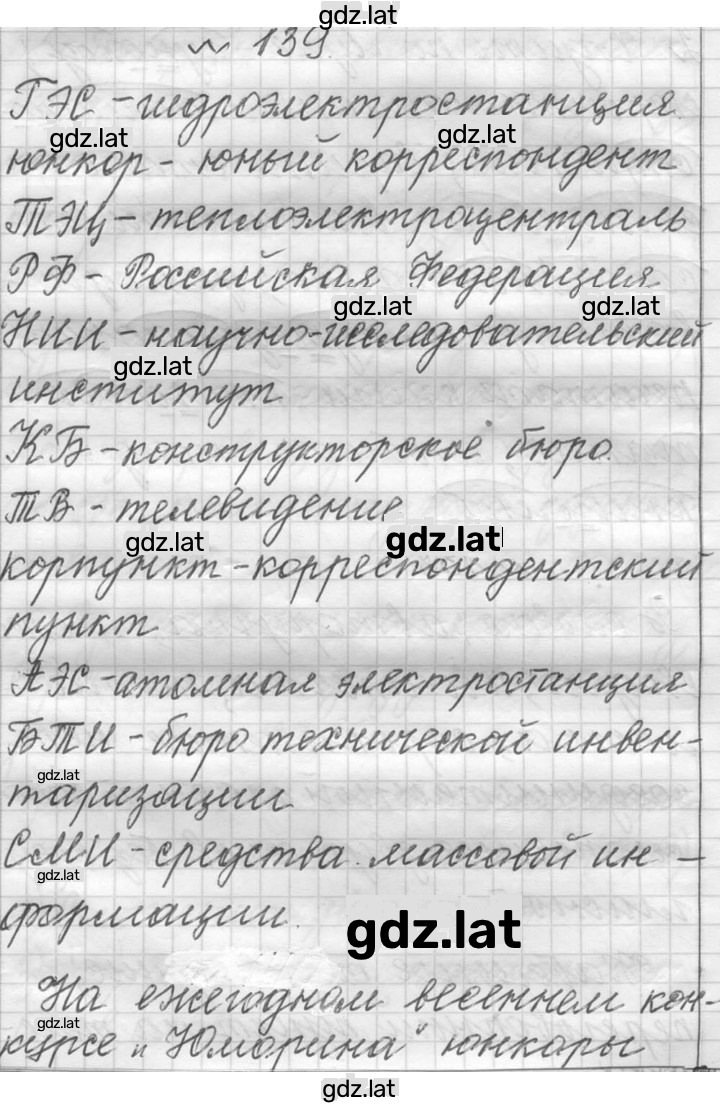 gdz.lat
№ 139.
ГЭС – гидроэлектростанция.
gdz.lat
gdz.lat
юнкор – юный корреспондент
ТЭЦ – теплоэлектроцентраль
РФ – Российская Федерация
gdz.lat
gdz.lat
НИИ – научно-исследовательский
gdz.lat
институт
КБ – конструкторское бюро.
ТВ – телевидение
gdz.lat
gdz.lat
корпункт – корреспондентский
пункт
АЭС – атомная электростанция
БТИ – бюро технической инвен-
gdz.lat
таризации
СМИ – средства массовой ин –
gdz.lat
формации.
gdz.lat
На ежегодном весеннем кон-
gdz.lat
курсе „Юморина" юнкоры
gdz.lat